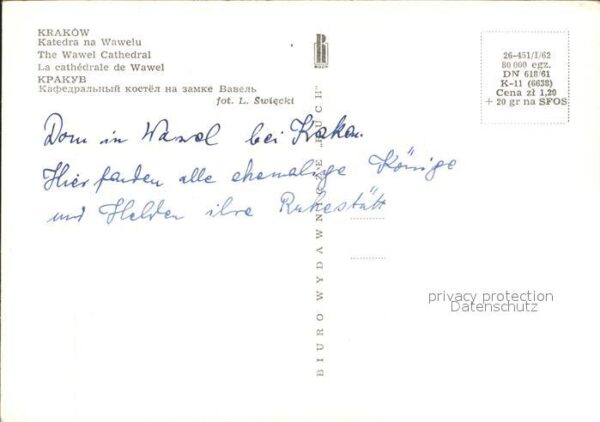 KRAKÓW
Katedra na Wawelu
The Wawel Cathedral
La cathédrale de Wawel
КРАКУВ
Кафедральный костёл на замке Вавель
fot. L. Święcki
Dom in Wawel bei Krakau.
Hier fanden alle ehemalige Könige
und Helden ihre Ruhestätt
BIURO WYDAWNICZE „RUCH"
26-451/I/62
80 000 egz.
DN 618/61
K-11 (6638)
Cena zł 1,20
+ 20 gr na SFOS
privacy protection
Datenschutz